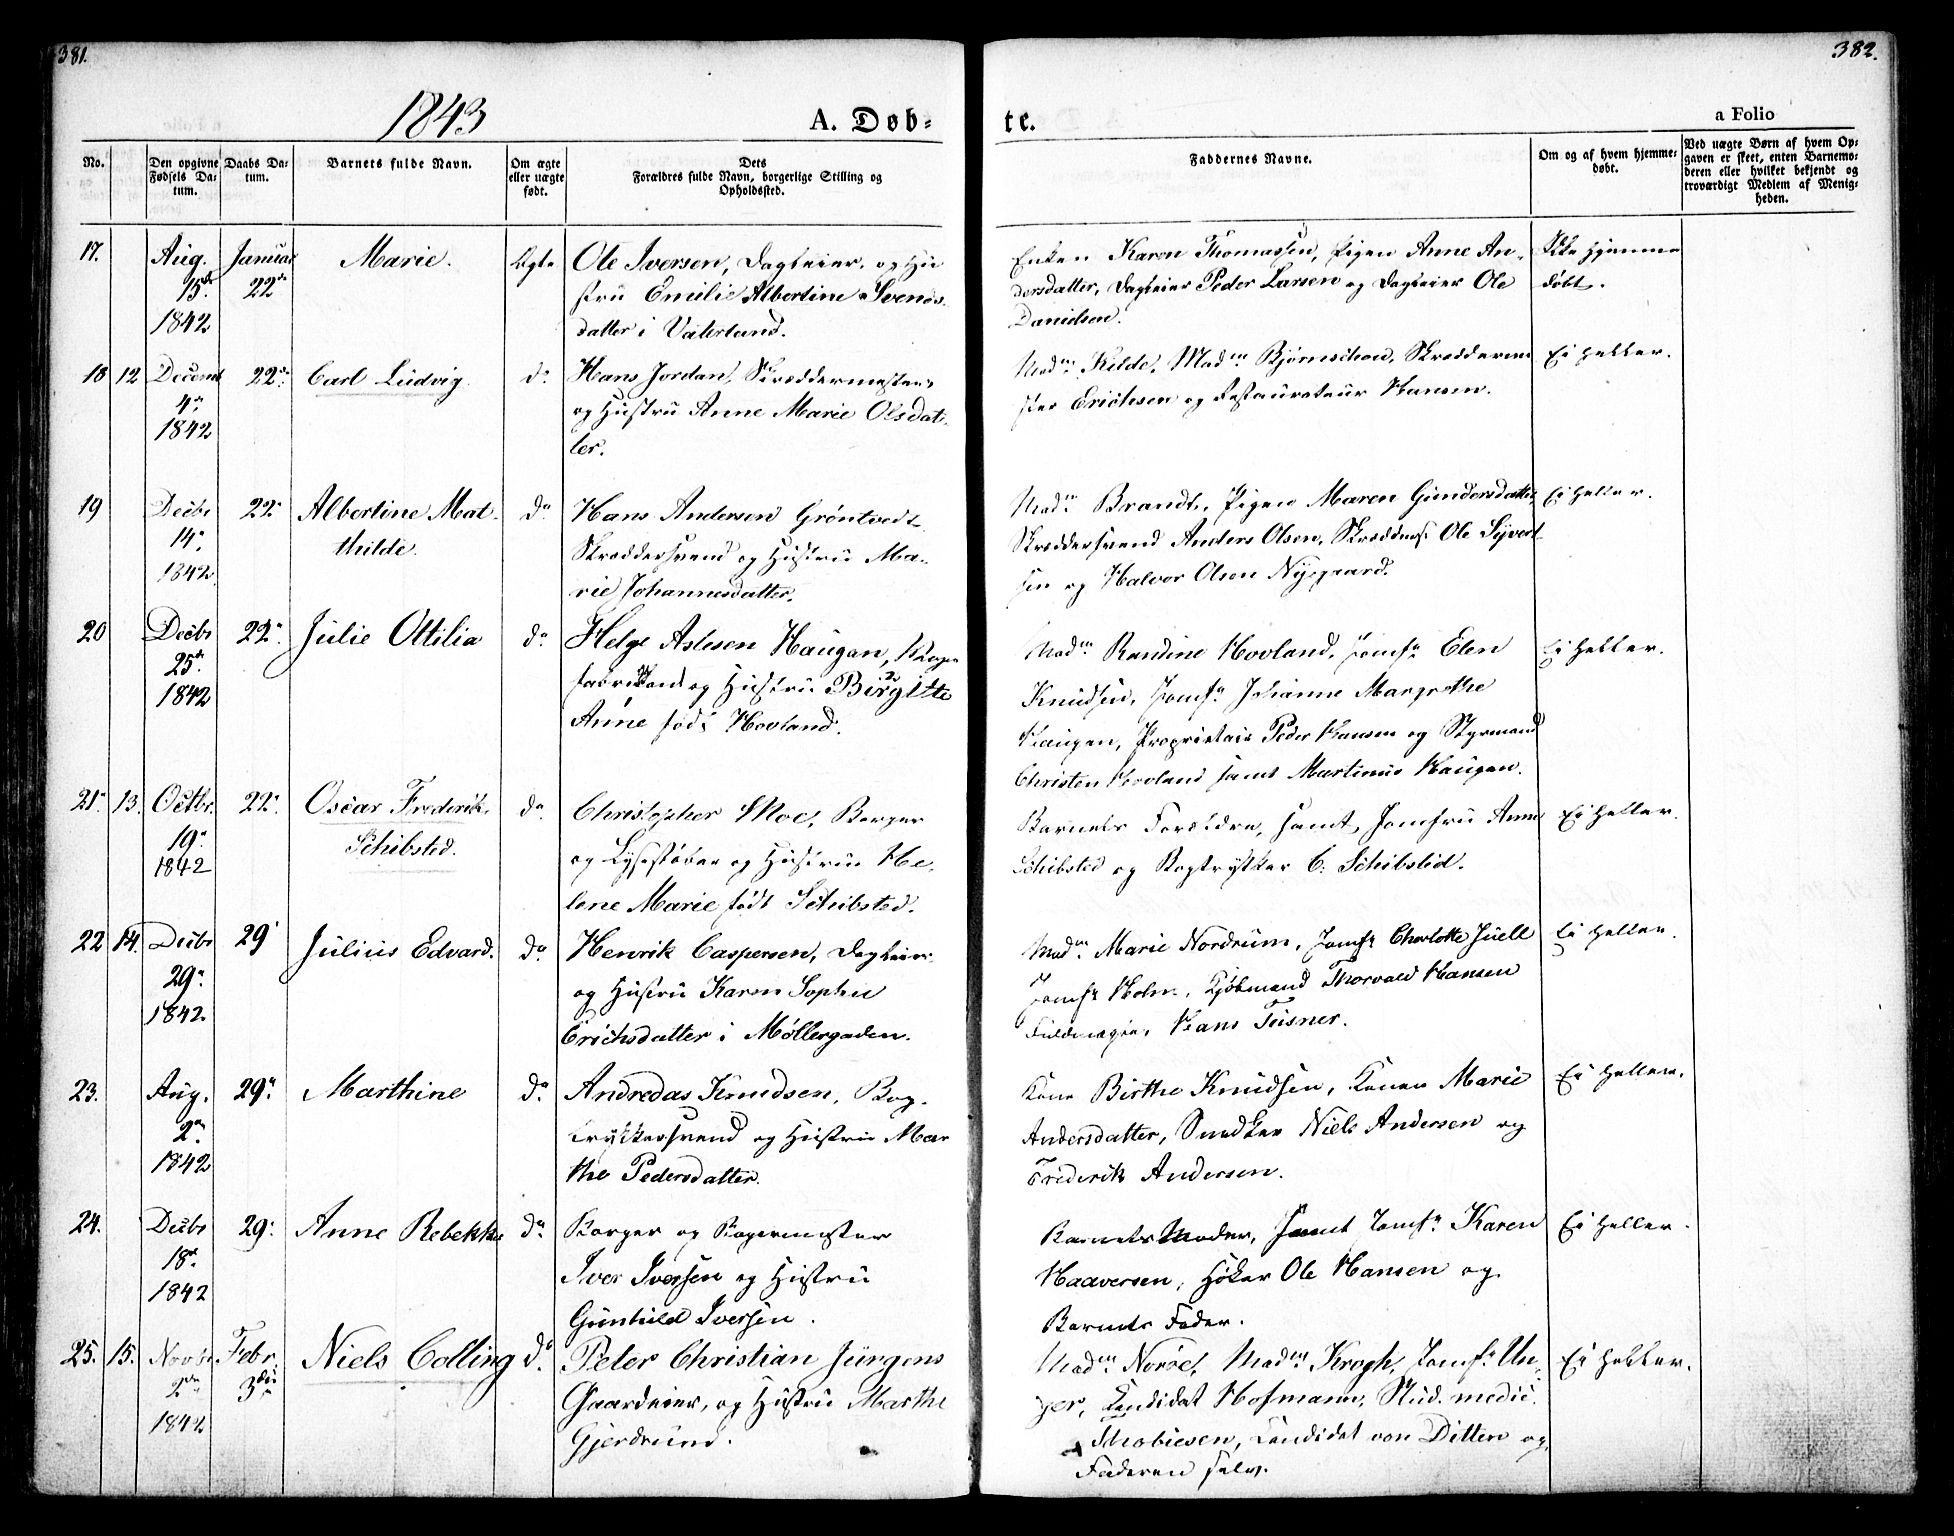 381.
382.
1843
A. Døb-
te.
a Folio
No.
Den opgivne Fødsels Datum.
Daabs Datum.
Barnets fulde Navn.
Om ægte eller uægte født.
Dets Forældres fulde Navn, borgerlige Stilling og Opholdssted.
Faddernes Navne.
Om og af hvem hjemmedøbt.
Ved uægte Børn af hvem Opgaven er skeet, enten Barnemoderen eller hvilket bekjendt og troværdigt Medlem af Menigheden.
17.
Aug. 15de 1842
Januar 22de
Marie.
Ægte
Ole Iversen, Dagleier, og Hu
stru Emilie Albertine Svends
datter i Vaterland.
Enken Karen Thomassen, Pigen Anne An-
dersdatter, Dagleier Peder Larsen og Dagleier Ole
Danielsen.
Ikke hjemme
døbt.
18 12
Decemb 4de 1842
22de
Carl Ludvig.
do
Hans Jordan, Skræddermester,
og Hustru Anne Marie Olsdat-
ter.
Madm Kilde, Madm Bjørnschou, Skræddermes
ter Erichsen og Restaurateur Hansen.
Ei heller.
19
Decbr 14de 1842
22de
Albertine Mat-
thilde.
do
Hans Andersen Gröntvedt
Skræddersvend og Hustru Ma-
rie Johannesdatter.
Madm Brandt, Pigen Maren Gundersdatter,
Skræddersvend Anders Olsen, Skrædms: Ole Syvert
sen og Halvor Olsen Nygaard.
Ei heller.
20
Decbr 25de 1842
22de
Julie Ottilia
do
Helge Aslesen Haugan,
fabrikant og Hustru Birgitte
Anne født Hovland.
Madm Randine Hovland, Jomfr Elen
Knudsen, Jomfr Johanne Margrethe
Haugan, Proprietair Peder Hansen og Styrmand
Christen Hovland samt Martinus Haugan.
Ei heller.
21. 13.
Octbr. 19de 1842
22de
Oscar Frederik
Schibsted.
do
Christopher Moe, Borger
og Lysestøber og Hustru He-
lene Marie født Schibsted.
Barnets Forældre, samt Jomfru Anne
Schibsted og Bogtrykker C. Schibsted.
Ei heller.
22 14.
Decbr 29de 1842.
29
Julius Edvard.
do
Henrik Caspersen, Dagleier
og Hustru Karen Sophie
Erichsdatter i Møllergaden.
Madm Marie Nordrum, Jomfr Charlotte Juell
Jomfr Holm, Kjøbmand Thorvald Hansen
Fuldmægtig Hans Teisner.
Ei heller.
23.
Aug. 2den 1842
29de
Marthine
do
Andreas Knudsen, Bog-
trykkersvend og Hustru Mar
the Pedersdatter.
Kone Birthe Knudsen, Konen Marie
Andersdatter, Snedker Niels Andersen og
Frederik Andersen.
Ei heller.
24.
Decbr 18de 1842
29de
Anne Rebekke
do
Borger og Bagermester
Iver Iversen og Hustru
Gunhild Iversen.
Barnets Moder, samt Jomfr Karen
Haaversen, Høker Ole Hansen og
Barnets Fader.
Ei heller.
25. 15.
Novbr 2den 1842
Febr. 3die
Niels Colling
do
Peter Christian Jürgens
Gaardeier, og Hustru Marthe
Gjerdrund.
Madm Norøe, Madm Krogh, Jomfr Un-
ger, Kandidat Hofmann, Stud. medic.
Thobiesen, Kandidat von Ditten og
Faderen selv.
Ei heller.